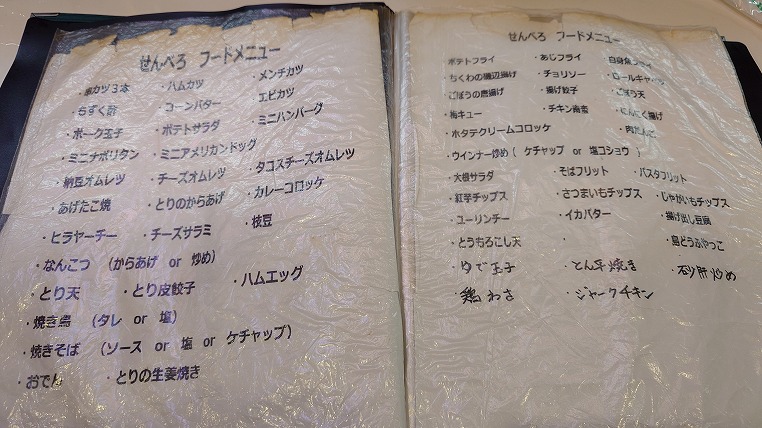 せんべろ フードメニュー
・串カツ3本 ・ハムカツ ・メンチカツ
・もずく酢 ・コーンバター ・エビカツ
・ポーク玉子 ・ポテトサラダ ・ミニハンバーグ
・ミニナポリタン ・ミニアメリカンドッグ
・納豆オムレツ ・チーズオムレツ ・タコスチーズオムレツ
・あげたこ焼 ・とりのからあげ ・カレーコロッケ
・ヒラヤーチー ・チーズサラミ ・枝豆
・なんこつ (からあげ or 炒め)
・とり天 ・とり皮餃子 ・ハムエッグ
・焼き鳥 (タレ or 塩)
・焼きそば (ソース or 塩 or ケチャップ)
・おでん ・とりの生姜焼き
せんべろ フードメニュー
・ポテトフライ ・あじフライ ・白身魚フライ
・ちくわの磯辺揚げ ・チョリソー ・ロールキャベツ
・ごぼうの唐揚げ ・揚げ餃子 ・ごぼう天
・梅キュー ・チキン南蛮 ・にんにく揚げ
・ホタテクリームコロッケ ・肉だんご
・ウインナー炒め ( ケチャップ or 塩コショウ )
・大根サラダ ・そばフリット ・パスタフリット
・紅芋チップス ・さつまいもチップス ・じゃがいもチップス
・ユーリンチー ・イカバター ・揚げ出し豆腐
・とうもろこし天 ・ ・島どうふやっこ
・ゆで玉子 ・とん平焼き ・砂肝炒め
・鶏わさ ・ジャークチキン